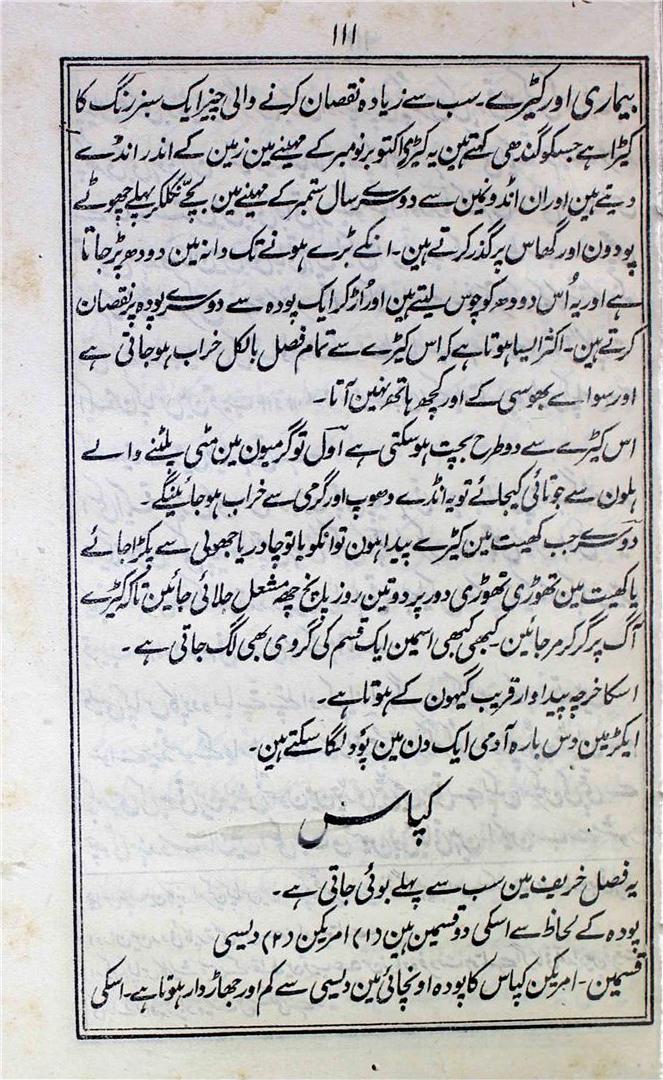 ۱۱۱
بیماری اور کیڑے۔ سب سے زیادہ نقصان کرنے والی چیز ایک سبز رنگ کا
کیڑا ہے جسکو گندھی کہتے ہین یہ کیڑے اکتوبر نومبر کے مہینے مین زمین کے اندر انڈے
دیتے ہین اور ان انڈونمین سے دوسرے سال ستمبر کے مہینے مین بچے نکلکر پہلے چھوٹے
پودون اور گھاس پر گذر کرتے ہین۔ انکے بڑے ہونے تک دانہ مین دودھ پڑ جاتا
ہے اور یہ اُس دودھ کو چوس لیتے ہین اور اُڑ کر ایک پودہ سے دوسرے پودہ پر نقصان
کرتے ہین۔ اکثر ایسا ہوتا ہے کہ اس کیڑے سے تمام فصل بالکل خراب ہو جاتی ہے
اور سواے بھوسی کے اور کچھ ہاتھ نہین آتا۔
اس کیڑے سے دو طرح بچت ہو سکتی ہے اول تو گرمیون مین مٹی پلٹنے والے
ہلون سے جوتائی کیجائے تو یہ انڈے دھوپ اور گرمی سے خراب ہو جائینگے۔
دوسرے جب کھیت مین کیڑے پیدا ہون تو انکو یا تو چادر یا جھولی سے پکڑا جائے
یا کھیت مین تھوڑی تھوڑی دور پر دو تین روز پانچ چھہ مشعل جلائی جائین تاکہ کیڑے
آگ پر گر کر مر جائین۔ کبھی کبھی اسمین ایک قسم کی گروی بھی لگ جاتی ہے۔
اسکا خرچہ پیداوار قریب گیہون کے ہوتا ہے۔
ایکڑ مین دس بارہ آدمی ایک دن مین پود لگا سکتے ہین۔
کپاس
یہ فصل خریف مین سب سے پہلے بوئی جاتی ہے۔
پودہ کے لحاظ سے اسکی دو قسمین ہین (۱) امریکن (۲) دیسی
قسمین۔ امریکن کپاس کا پودہ اونچائی مین دیسی سے کم اور جھاڑدار ہوتا ہے۔ اسکی